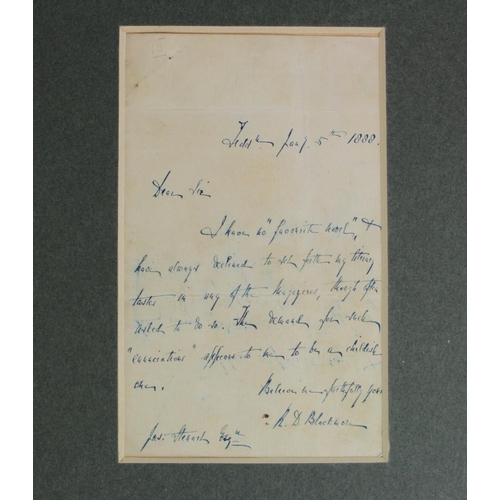 Tedd^n Jany. 5^th 1888.
Dear Sir
I have no "favorite novel", &
have always declined to set forth my literary
tastes in any of the Magazines, though often
asked to do so. The demand for such
"enunciations" appears to me to be a childish
one.
Believe me faithfully yours
R. D. Blackmore
Jas. Stewart Esq^re